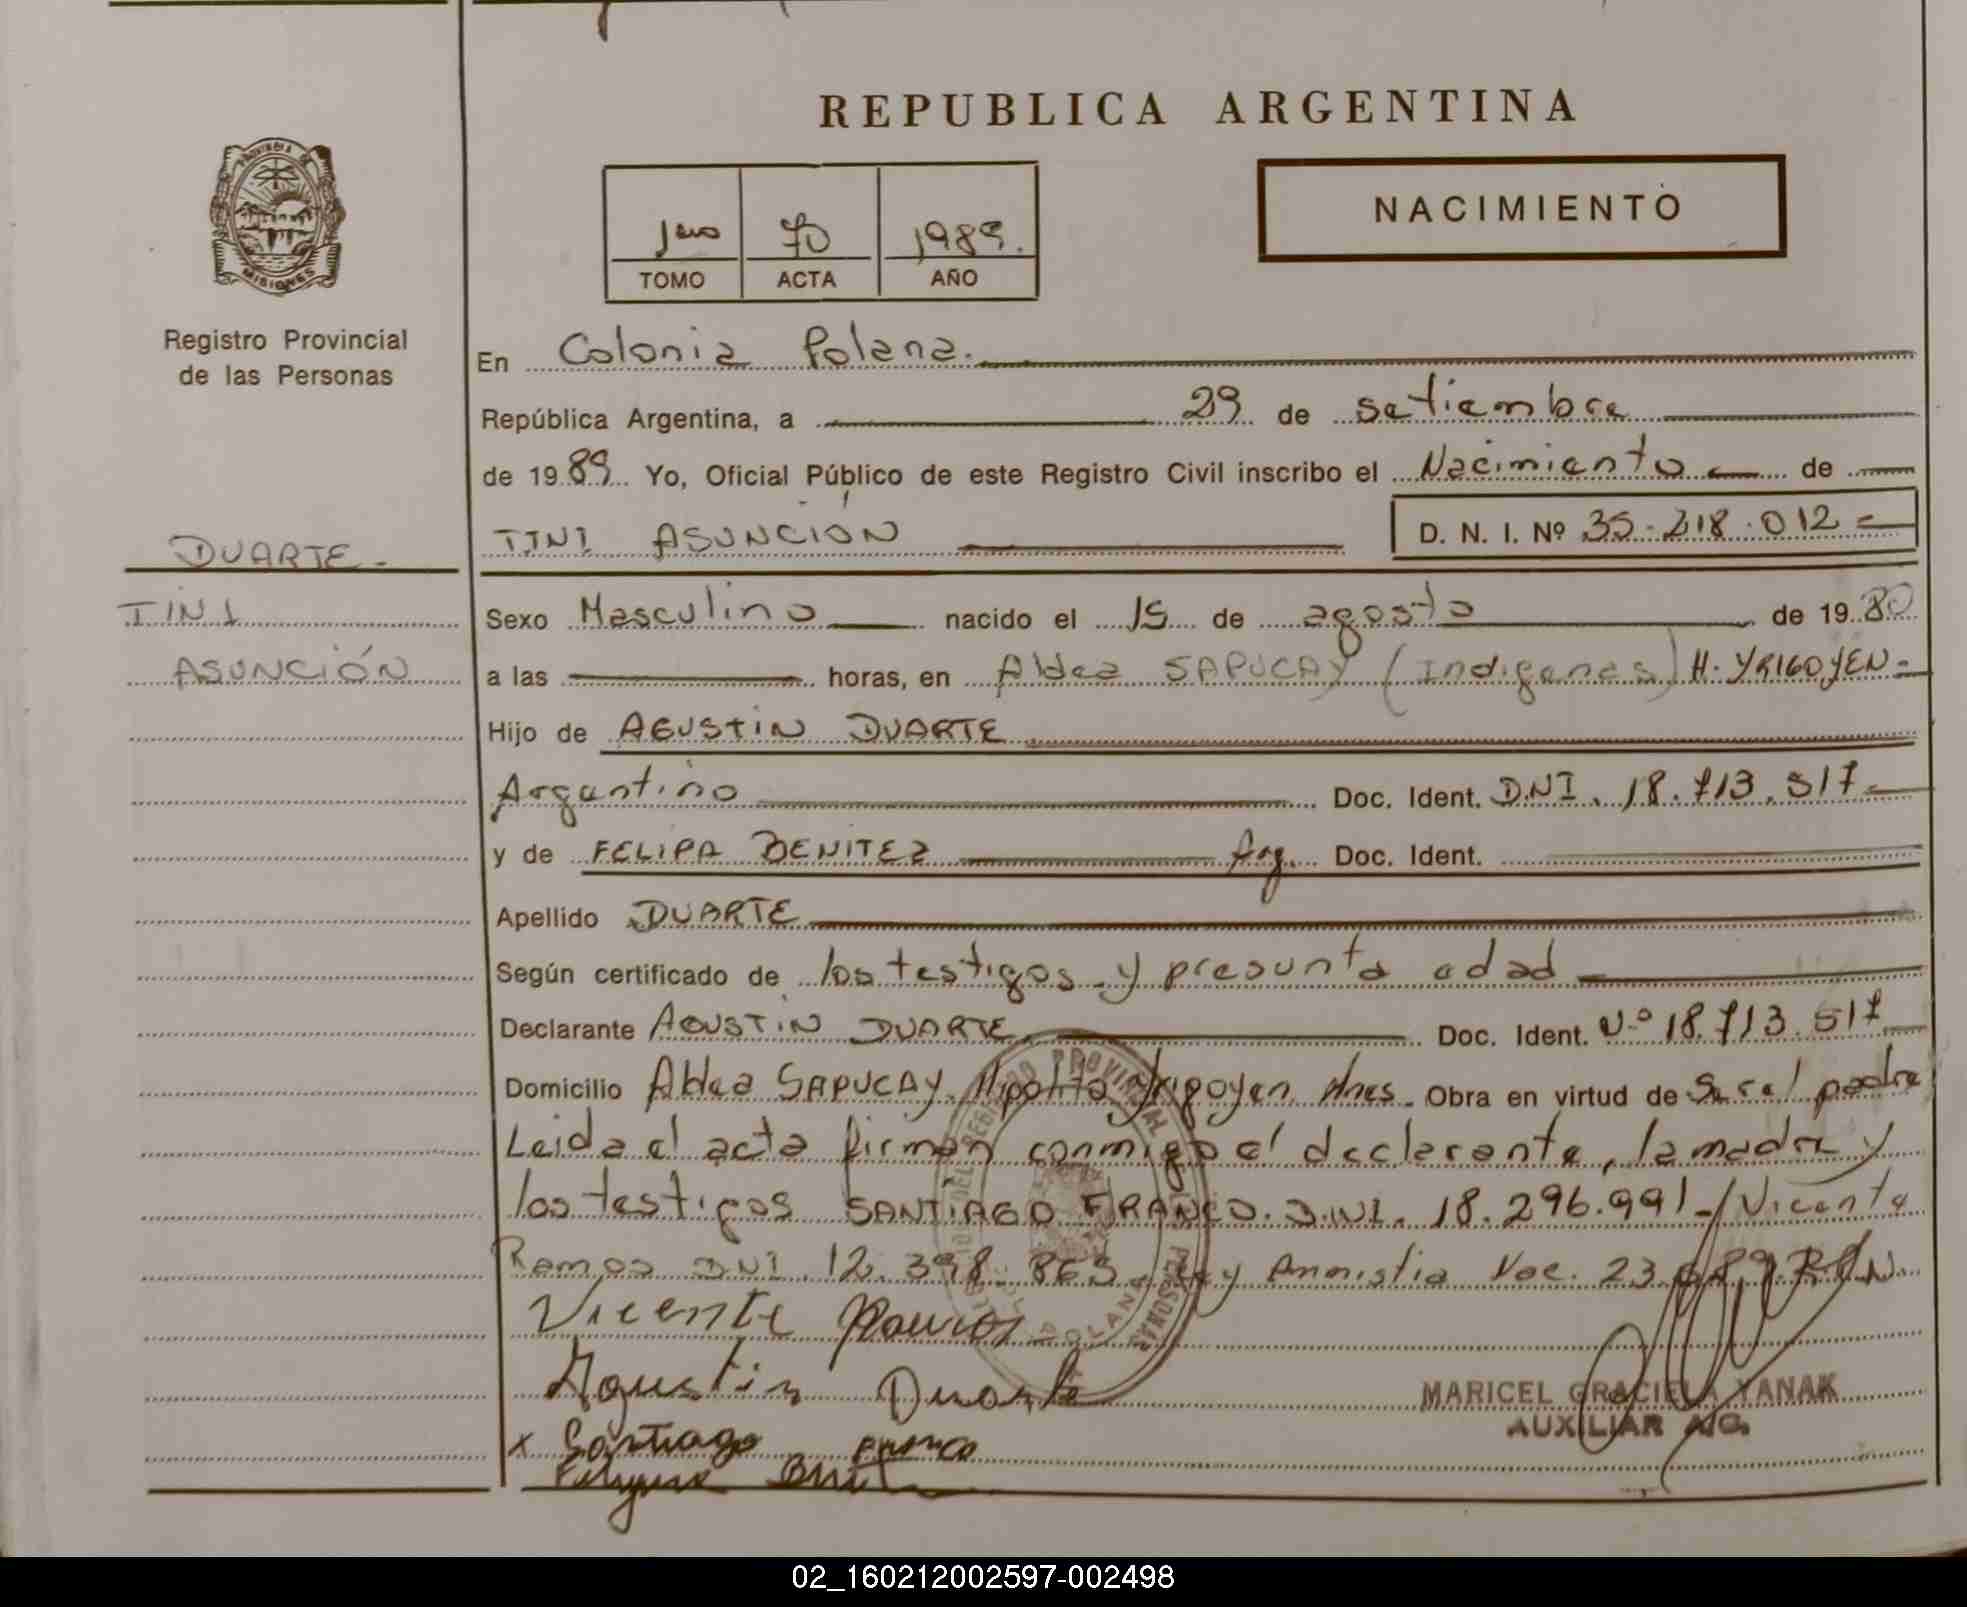 REPUBLICA ARGENTINA
PROVINCIA DE
MISIONES
Registro Provincial
de las Personas
1ero 70 1989.
TOMO ACTA AÑO
NACIMIENTO
En Colonia Polana.
República Argentina, a 29 de setiembre
de 1989 Yo, Oficial Público de este Registro Civil inscribo el Nacimiento de
TINI ASUNCIÓN D. N. I. Nº 35.218.012
DUARTE
TINI
ASUNCIÓN
Sexo Masculino nacido el 15 de agosto de 1980
a las horas, en Aldea SAPUCAY (Indigenas) H. YRIGOYEN
Hijo de AGUSTIN DUARTE
Argentino Doc. Ident. DNI. 18.713.517
y de FELIPA BENITEZ Arg. Doc. Ident.
Apellido DUARTE
Según certificado de los testigos y presunta edad
Declarante AGUSTIN DUARTE Doc. Ident. N.º 18.713.517
Domicilio Aldea SAPUCAY. Hipolito Yrigoyen Mnes. Obra en virtud de Ser el padre
Leida el acta firman conmigo el declarante, la madre y
los testigos SANTIAGO FRANCO. D.NI. 18.296.991-/Vicente
Ramos DNI. 12.398.863. Ley Amnistia Nac.
Vicente Ramos
Agustin Duarte
MARICEL GRACIELA YANAK
AUXILIAR A/C.
x Santiago Franco
02_160212002597-002498